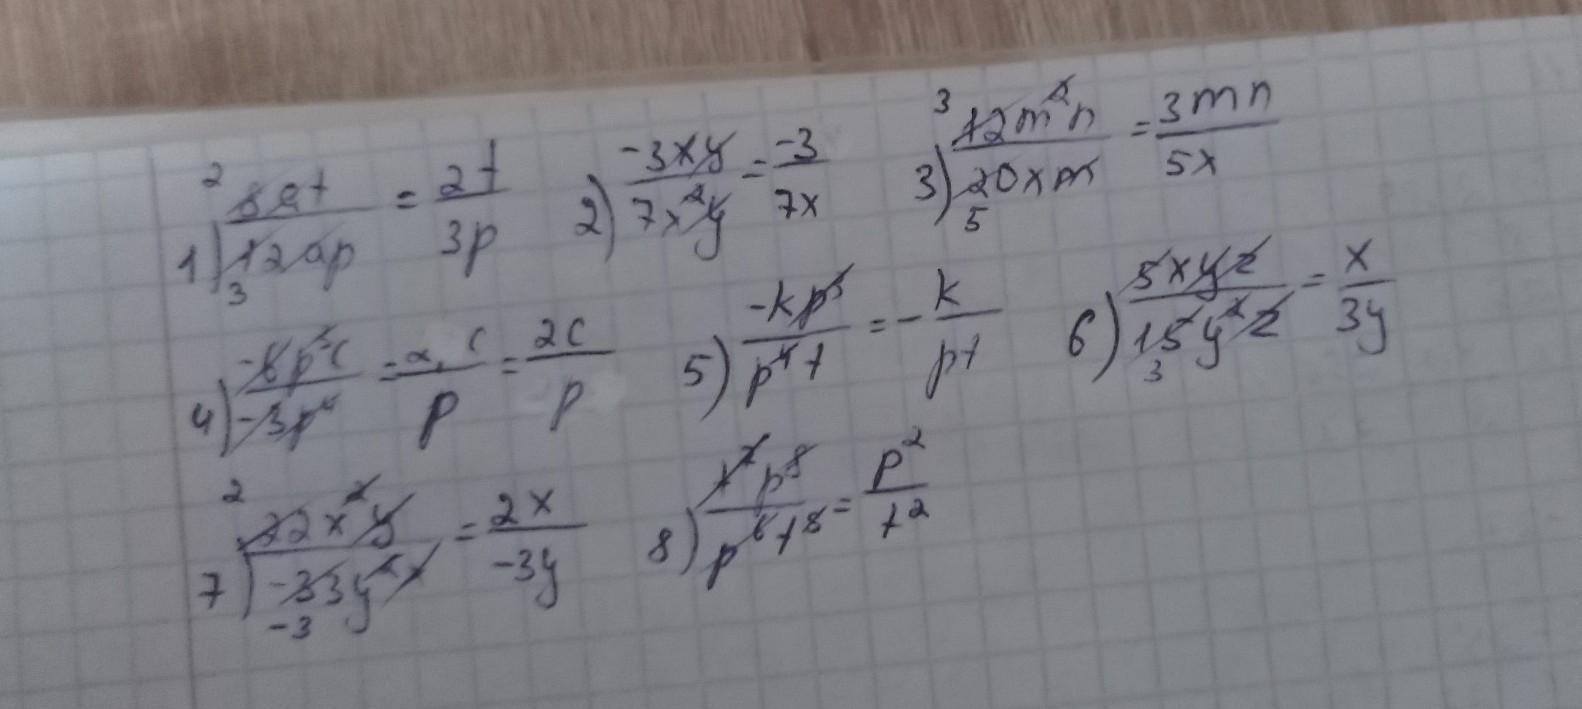 1) 8at/12ap = 2t/3p 2) -3xy/7x²y = -3/7x 3) 12m²n/20xm = 3mn/5x
4) -6p³c/-3p⁴ = 2c/p 5) -kp³/p⁴t = -k/pt 6) 5xyz/15y²z = x/3y
7) 22x²y/-33y²x = 2x/-3y 8) p⁸/p⁶t⁸ = p²/t²